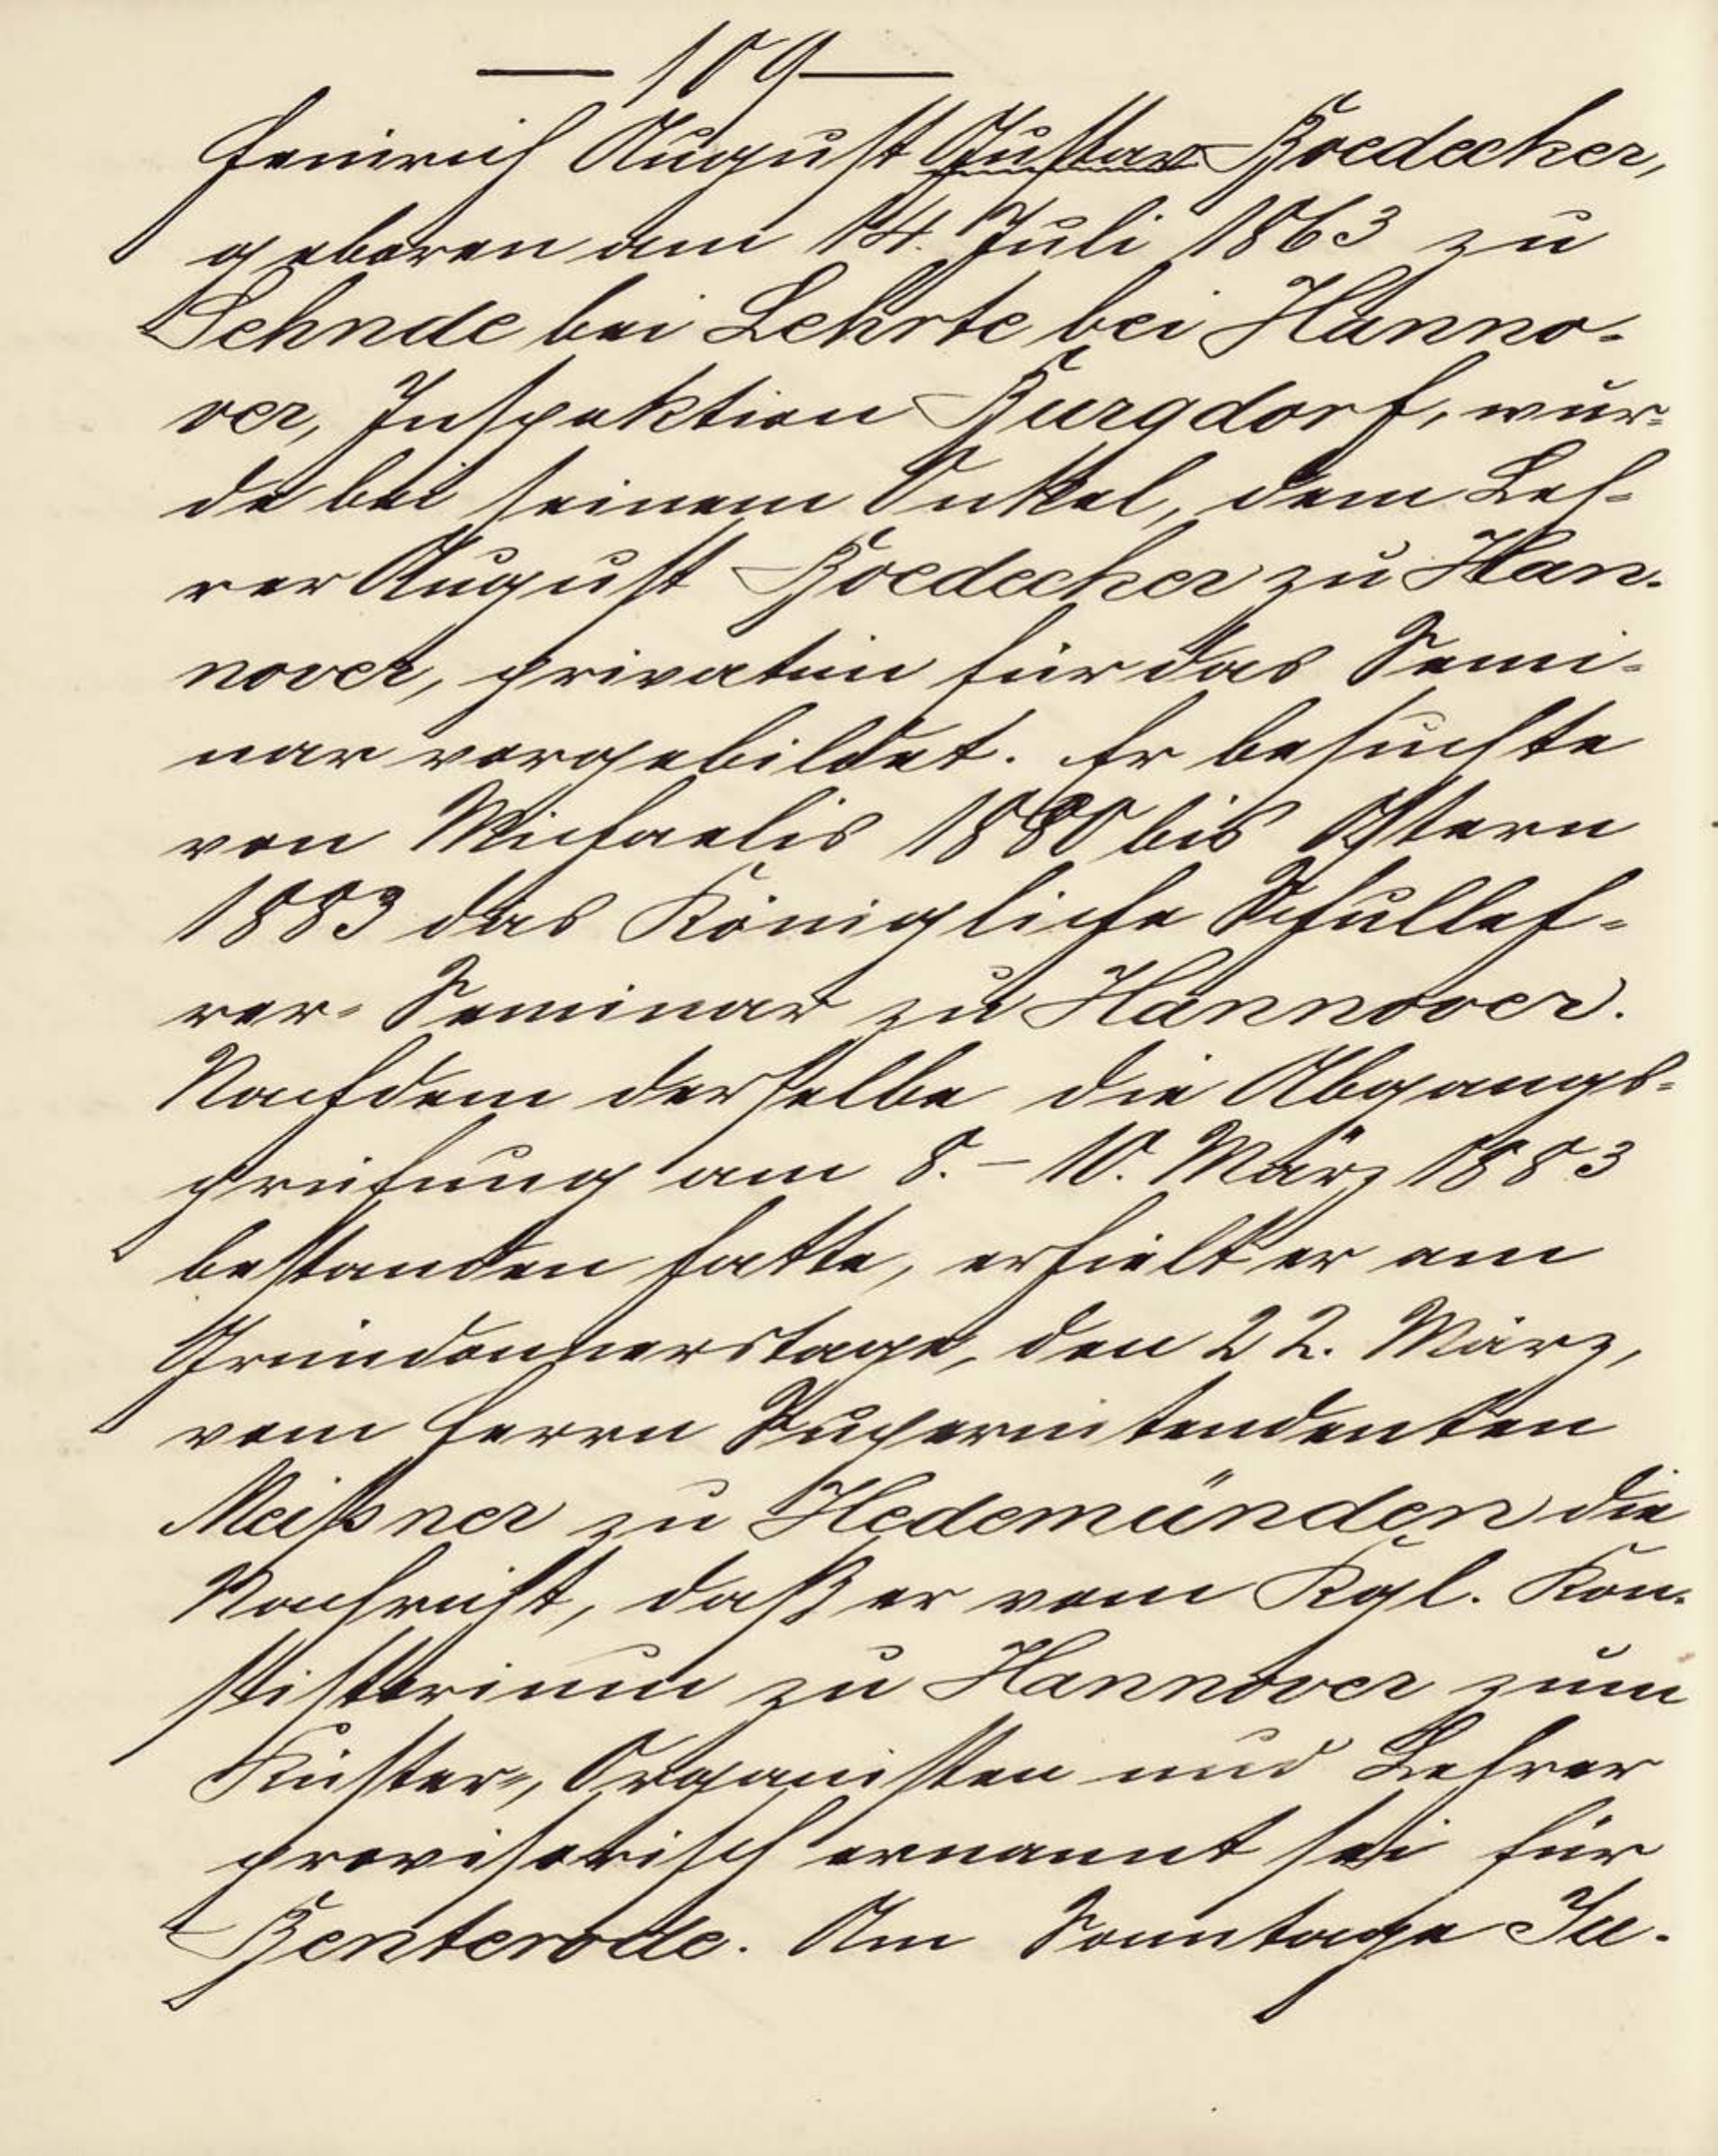 — 109 —
Heinrich August Gustav Boedecker,
geboren am 14. Juli 1863 zu
Sehnde bei Lehrte bei Hanno-
ver, Inspektion Burgdorf, wur-
de bei seinem Onkel, dem Leh-
rer August Boedecker zu Han-
nover, privatim für das Semi-
nar vorgebildet. Er besuchte
von Michaelis 1880 bis Ostern
1883 das Königliche Schulleh-
rer-Seminar zu Hannover.
Nachdem derselbe die Abgangs-
prüfung am 8. – 10. März 1883
bestanden hatte, erhielt er am
Gründonnerstage, den 22. März,
vom Herrn Superintendenten
Meißner zu Hedemünden die
Nachricht, daß er vom Kgl. Kon-
sistorium zu Hannover zum
Küster-, Organisten und Lehrer
provisorisch ernannt sei für
Benterode. Am Sonntage Ju-